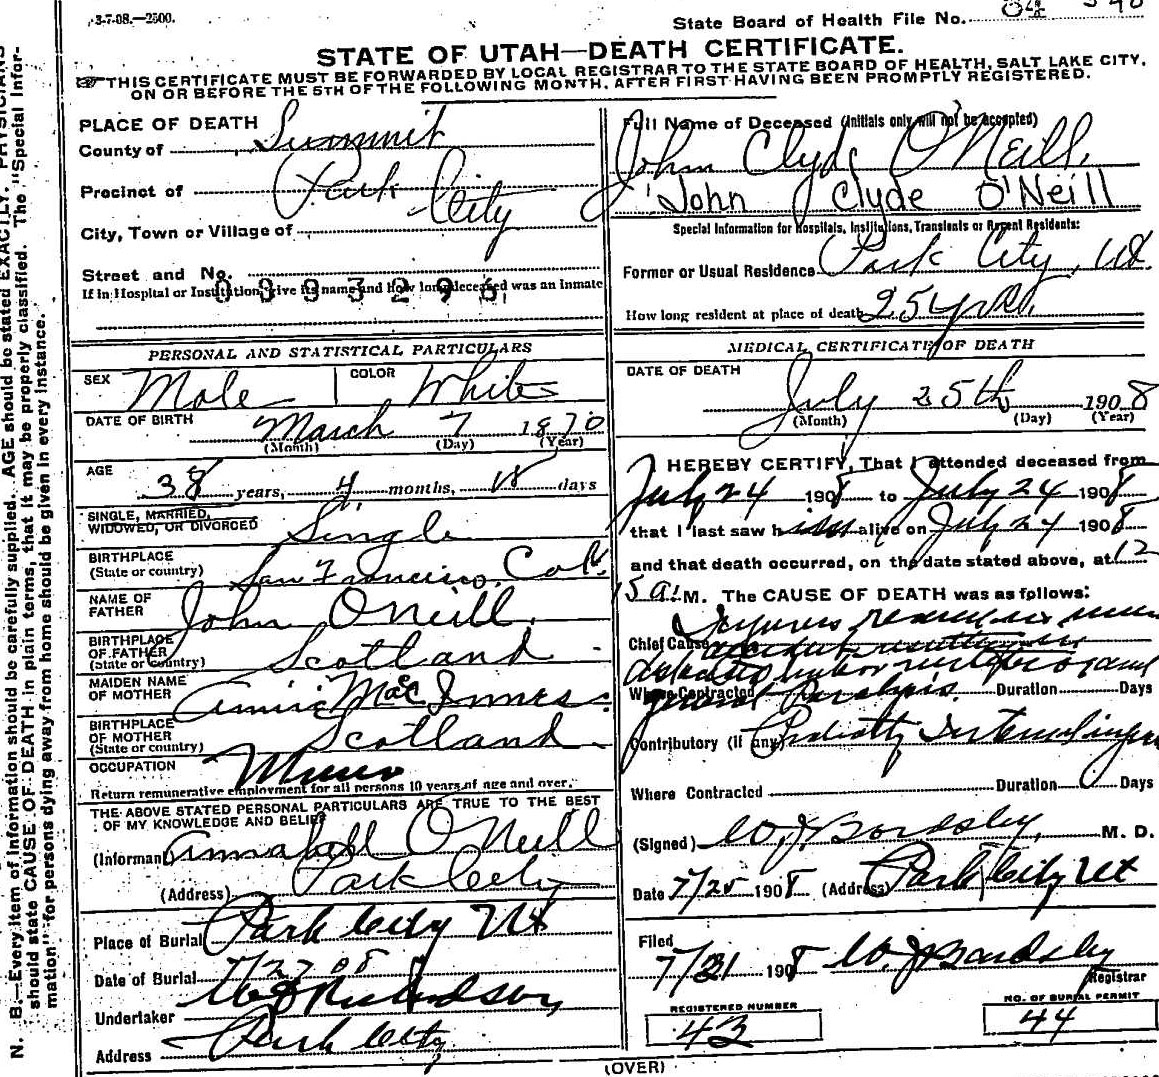 3-7-08.—2500.
State Board of Health File No.
STATE OF UTAH—DEATH CERTIFICATE.
THIS CERTIFICATE MUST BE FORWARDED BY LOCAL REGISTRAR TO THE STATE BOARD OF HEALTH, SALT LAKE CITY,
ON OR BEFORE THE 5TH OF THE FOLLOWING MONTH, AFTER FIRST HAVING BEEN PROMPTLY REGISTERED.
N. B.—Every item of information should be carefully supplied. AGE should be stated EXACTLY. PHYSICIANS
should state CAUSE OF DEATH in plain terms, that it may be properly classified. The "Special Infor-
mation" for persons dying away from home should be given in every instance.
PLACE OF DEATH
County of Summit
Precinct of Park City
City, Town or Village of
Street and No.
If in Hospital or Institution, give its name and how long deceased was an Inmate
PERSONAL AND STATISTICAL PARTICULARS
SEX Male COLOR White
DATE OF BIRTH March 7 1870
(Month) (Day) (Year)
AGE
38 years, 4 months, 18 days
SINGLE, MARRIED,
WIDOWED, OR DIVORCED Single
BIRTHPLACE
(State or country) San Francisco, Cal.
NAME OF
FATHER John O'Neill
BIRTHPLACE
OF FATHER
(State or country) Scotland
MAIDEN NAME
OF MOTHER Annie MacInnes
BIRTHPLACE
OF MOTHER
(State or country) Scotland
OCCUPATION Miner
Return remunerative employment for all persons 10 years of age and over.
THE ABOVE STATED PERSONAL PARTICULARS ARE TRUE TO THE BEST
OF MY KNOWLEDGE AND BELIEF
(Informant) Annabell O'Neill
(Address) Park City
Place of Burial Park City Ut
Date of Burial 7/27 08
Undertaker Richardson
Address Park City
Full Name of Deceased (Initials only will not be accepted)
John Clyde O'Neill
John Clyde O'Neill
Special Information for Hospitals, Institutions, Transients or Recent Residents:
Former or Usual Residence Park City, Ut
How long resident at place of death 25 yrs.
MEDICAL CERTIFICATE OF DEATH
DATE OF DEATH
July 25th 1908
(Month) (Day) (Year)
I HEREBY CERTIFY, That I attended deceased from
July 24 1908 to July 24 1908
that I last saw him alive on July 24 1908
and that death occurred, on the date stated above, at 12
15 a. M. The CAUSE OF DEATH was as follows:
Chief Cause
Where Contracted general Paralysis Duration Days
Contributory (if any)
Where Contracted Duration Days
(Signed) W. J. Bardsley, M. D.
Date 7/25 1908 (Address) Park City Ut
Filed
7/31 1908 W. J. Bardsley
Registrar
REGISTERED NUMBER
43
NO. OF BURIAL PERMIT
44
(OVER)